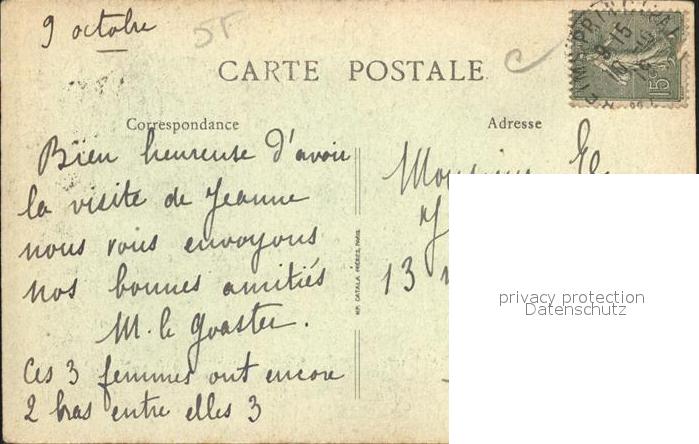 9 octobre
5F
CARTE POSTALE
Correspondance
Adresse
Bien heureuse d'avoir
la visite de Jeanne
nous vous envoyons
nos bonnes amitiés
M. le Goaster.
Ces 3 femmes ont encore
2 bras entre elles 3
IMP. CATALA FRÈRES, PARIS
Monsieur
13
15c
REIMS PRINCIPAL
privacy protection
Datenschutz